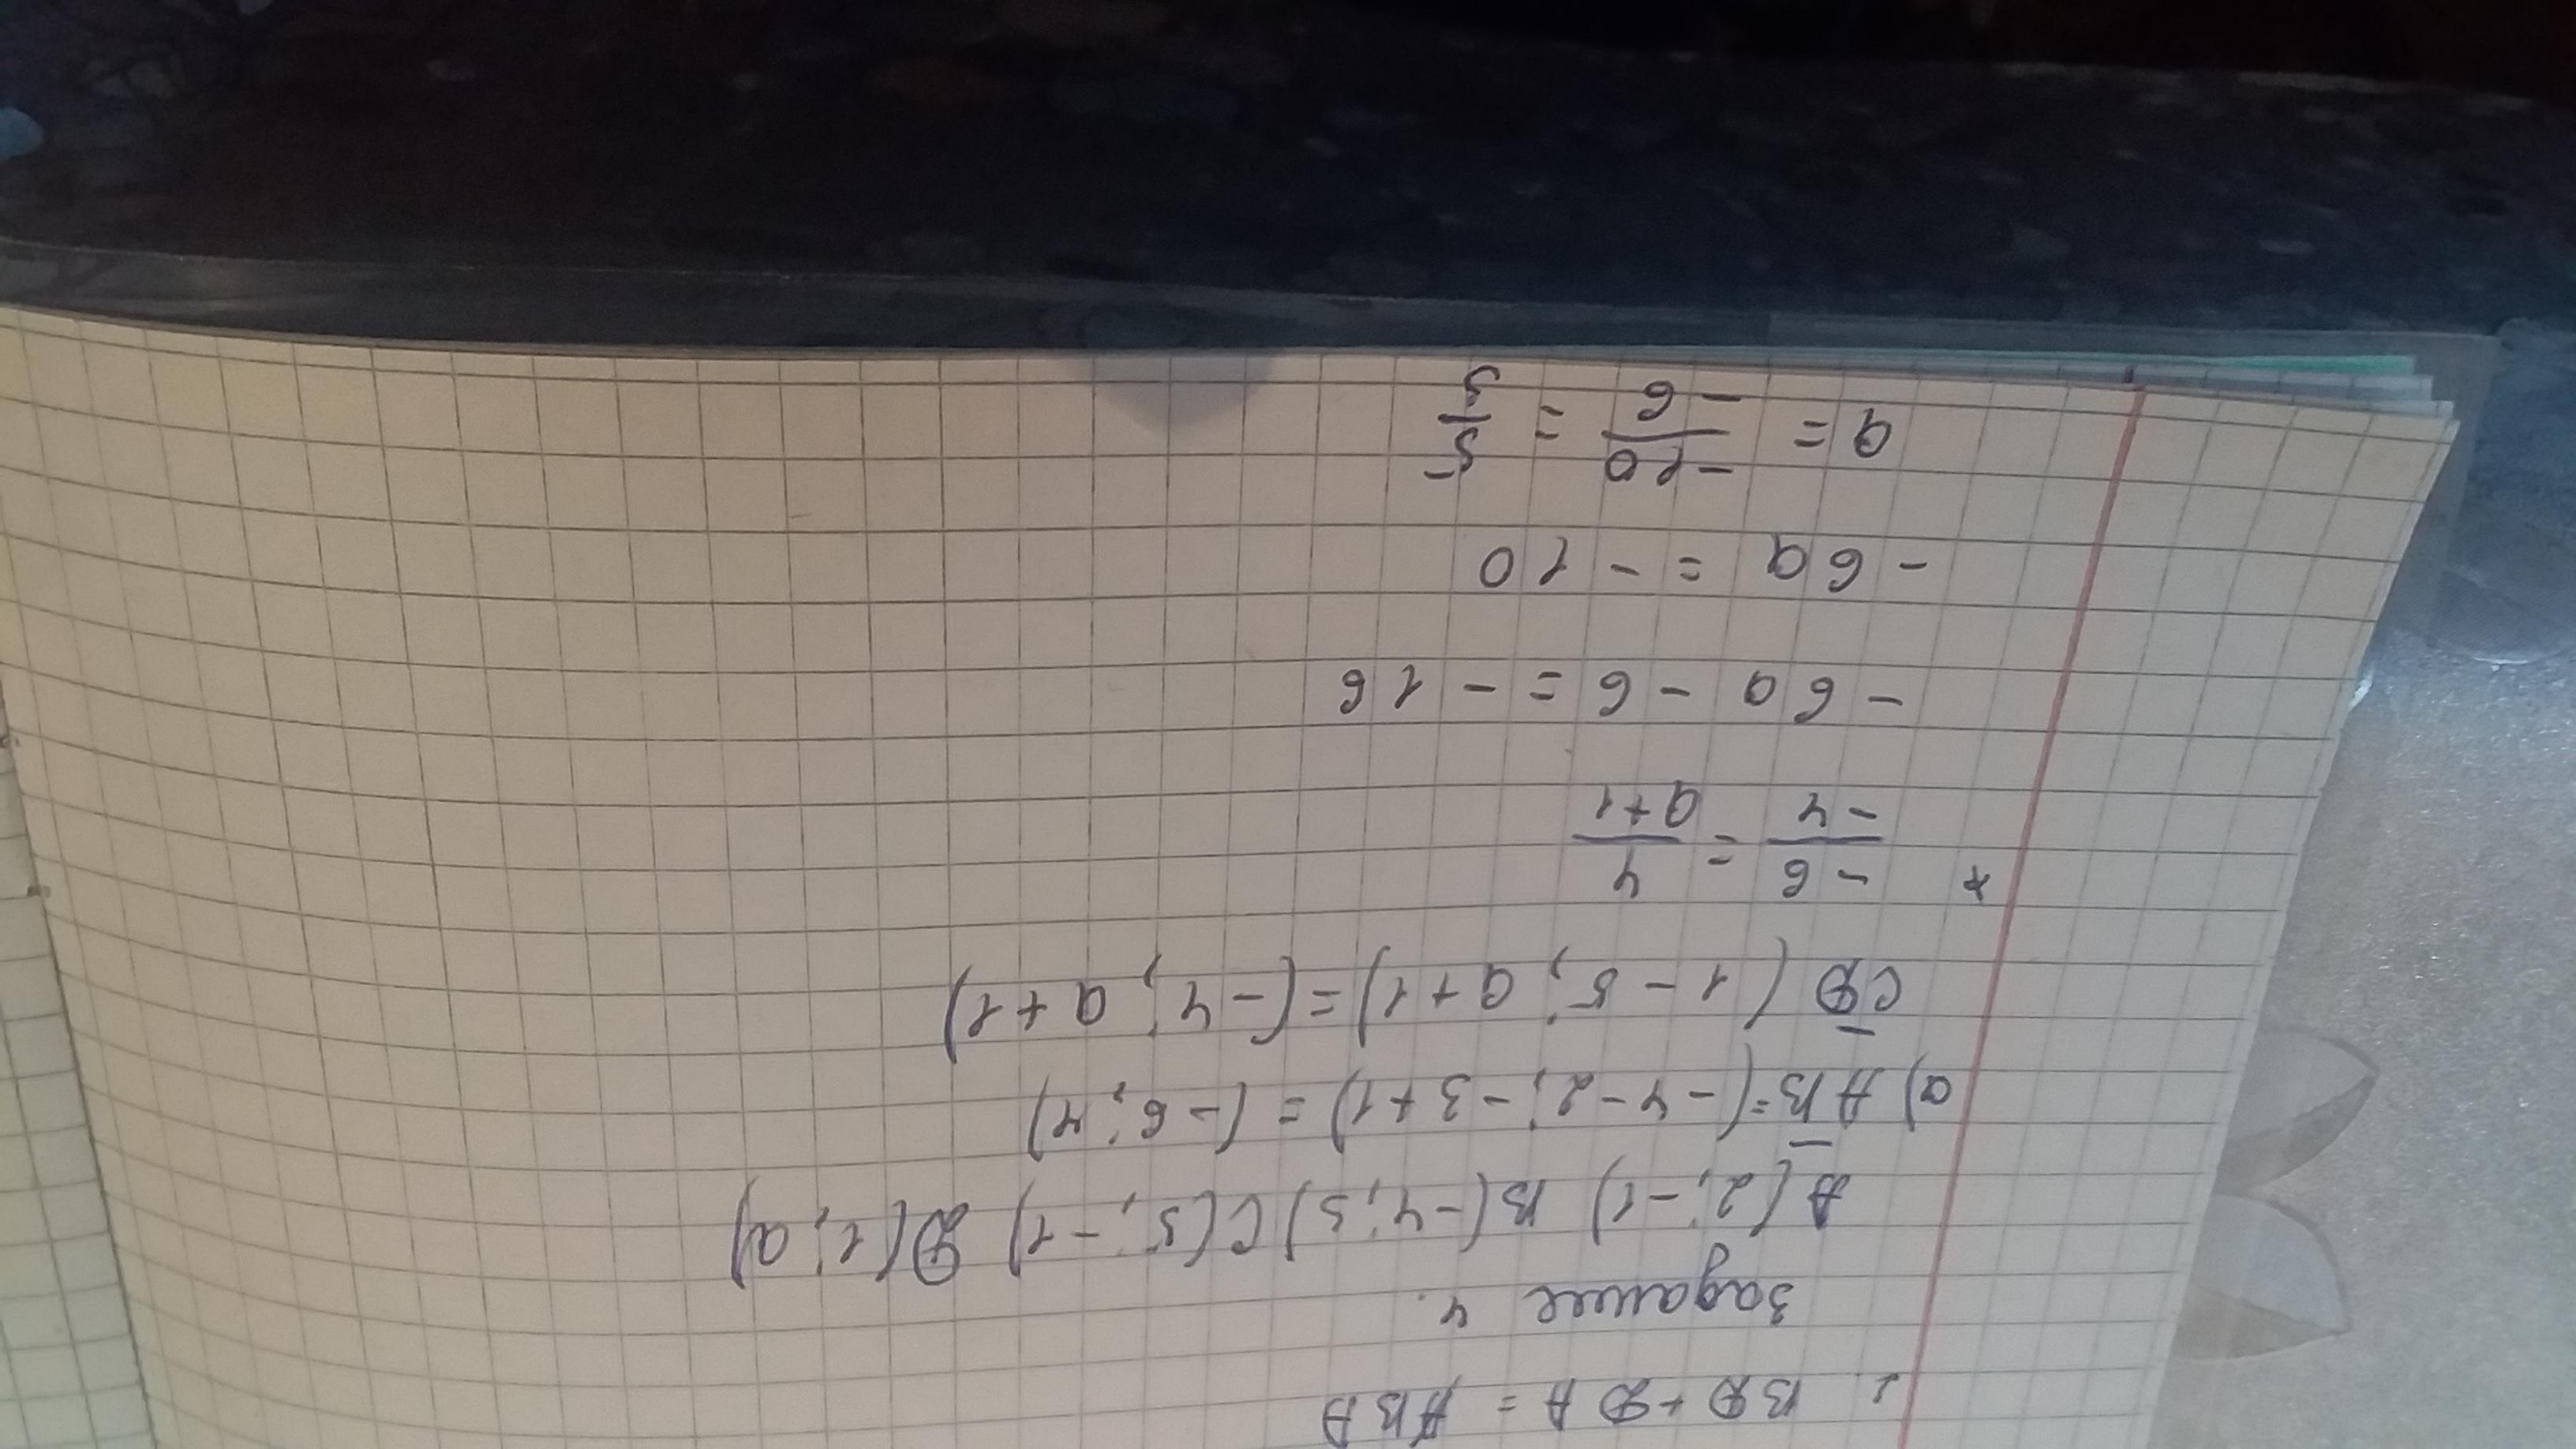 2. BD + DA = ABA
Задание 4.
A(2; -1) B(-4; 3) C(5; -1) D(1; a)
a) AB=(-4-2; -3+1) = (-6; 4)
CD (1 - 5; a+1) = (-4; a+1)
* -6/-4 = 4/a+1
- 6a - 6 = - 16
- 6a = - 10
a = -10/-6 = 5/3